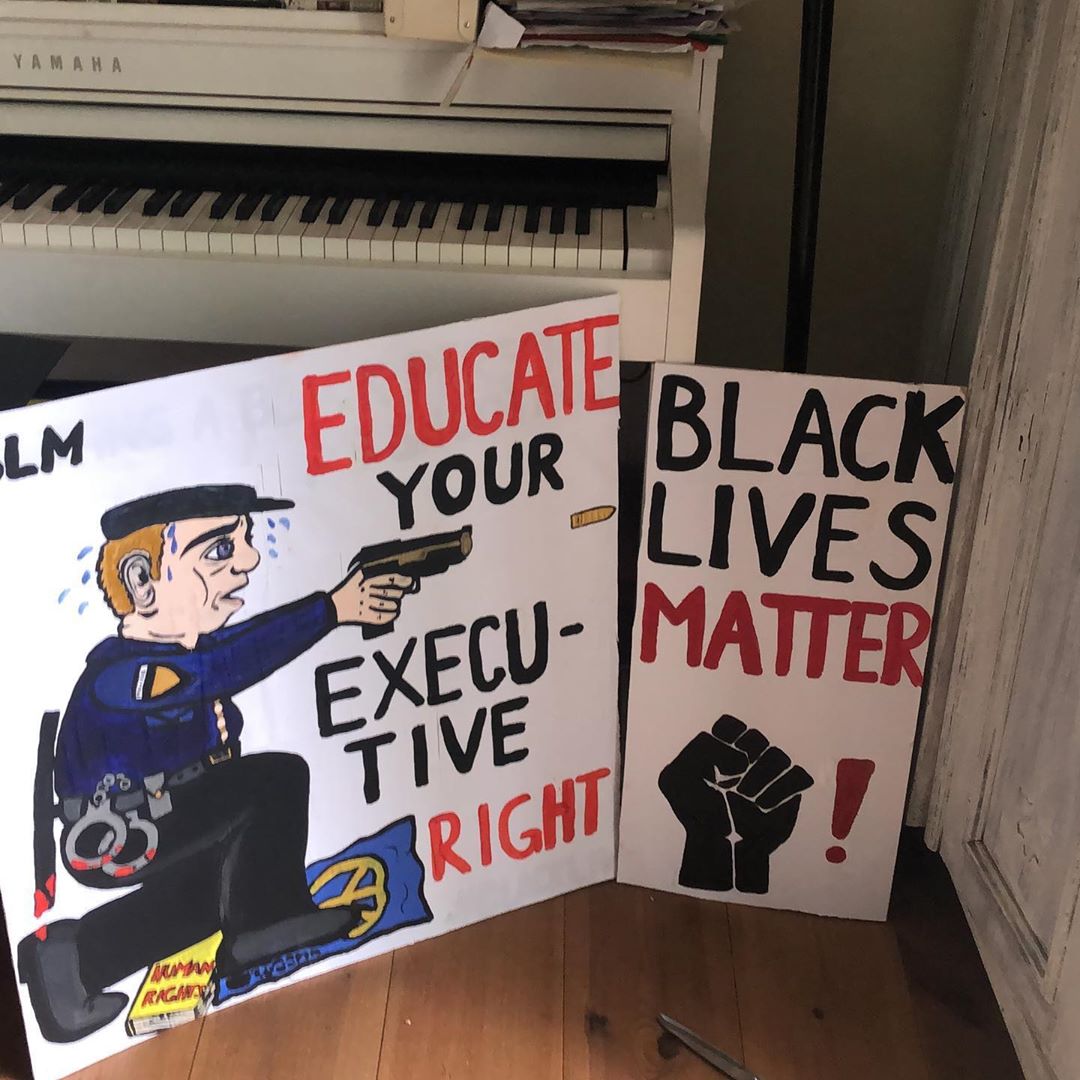 YAMAHA
BLM
EDUCATE
YOUR
EXECU-
TIVE
RIGHT
HUMAN
RIGHTS
BLACK
LIVES
MATTER
!